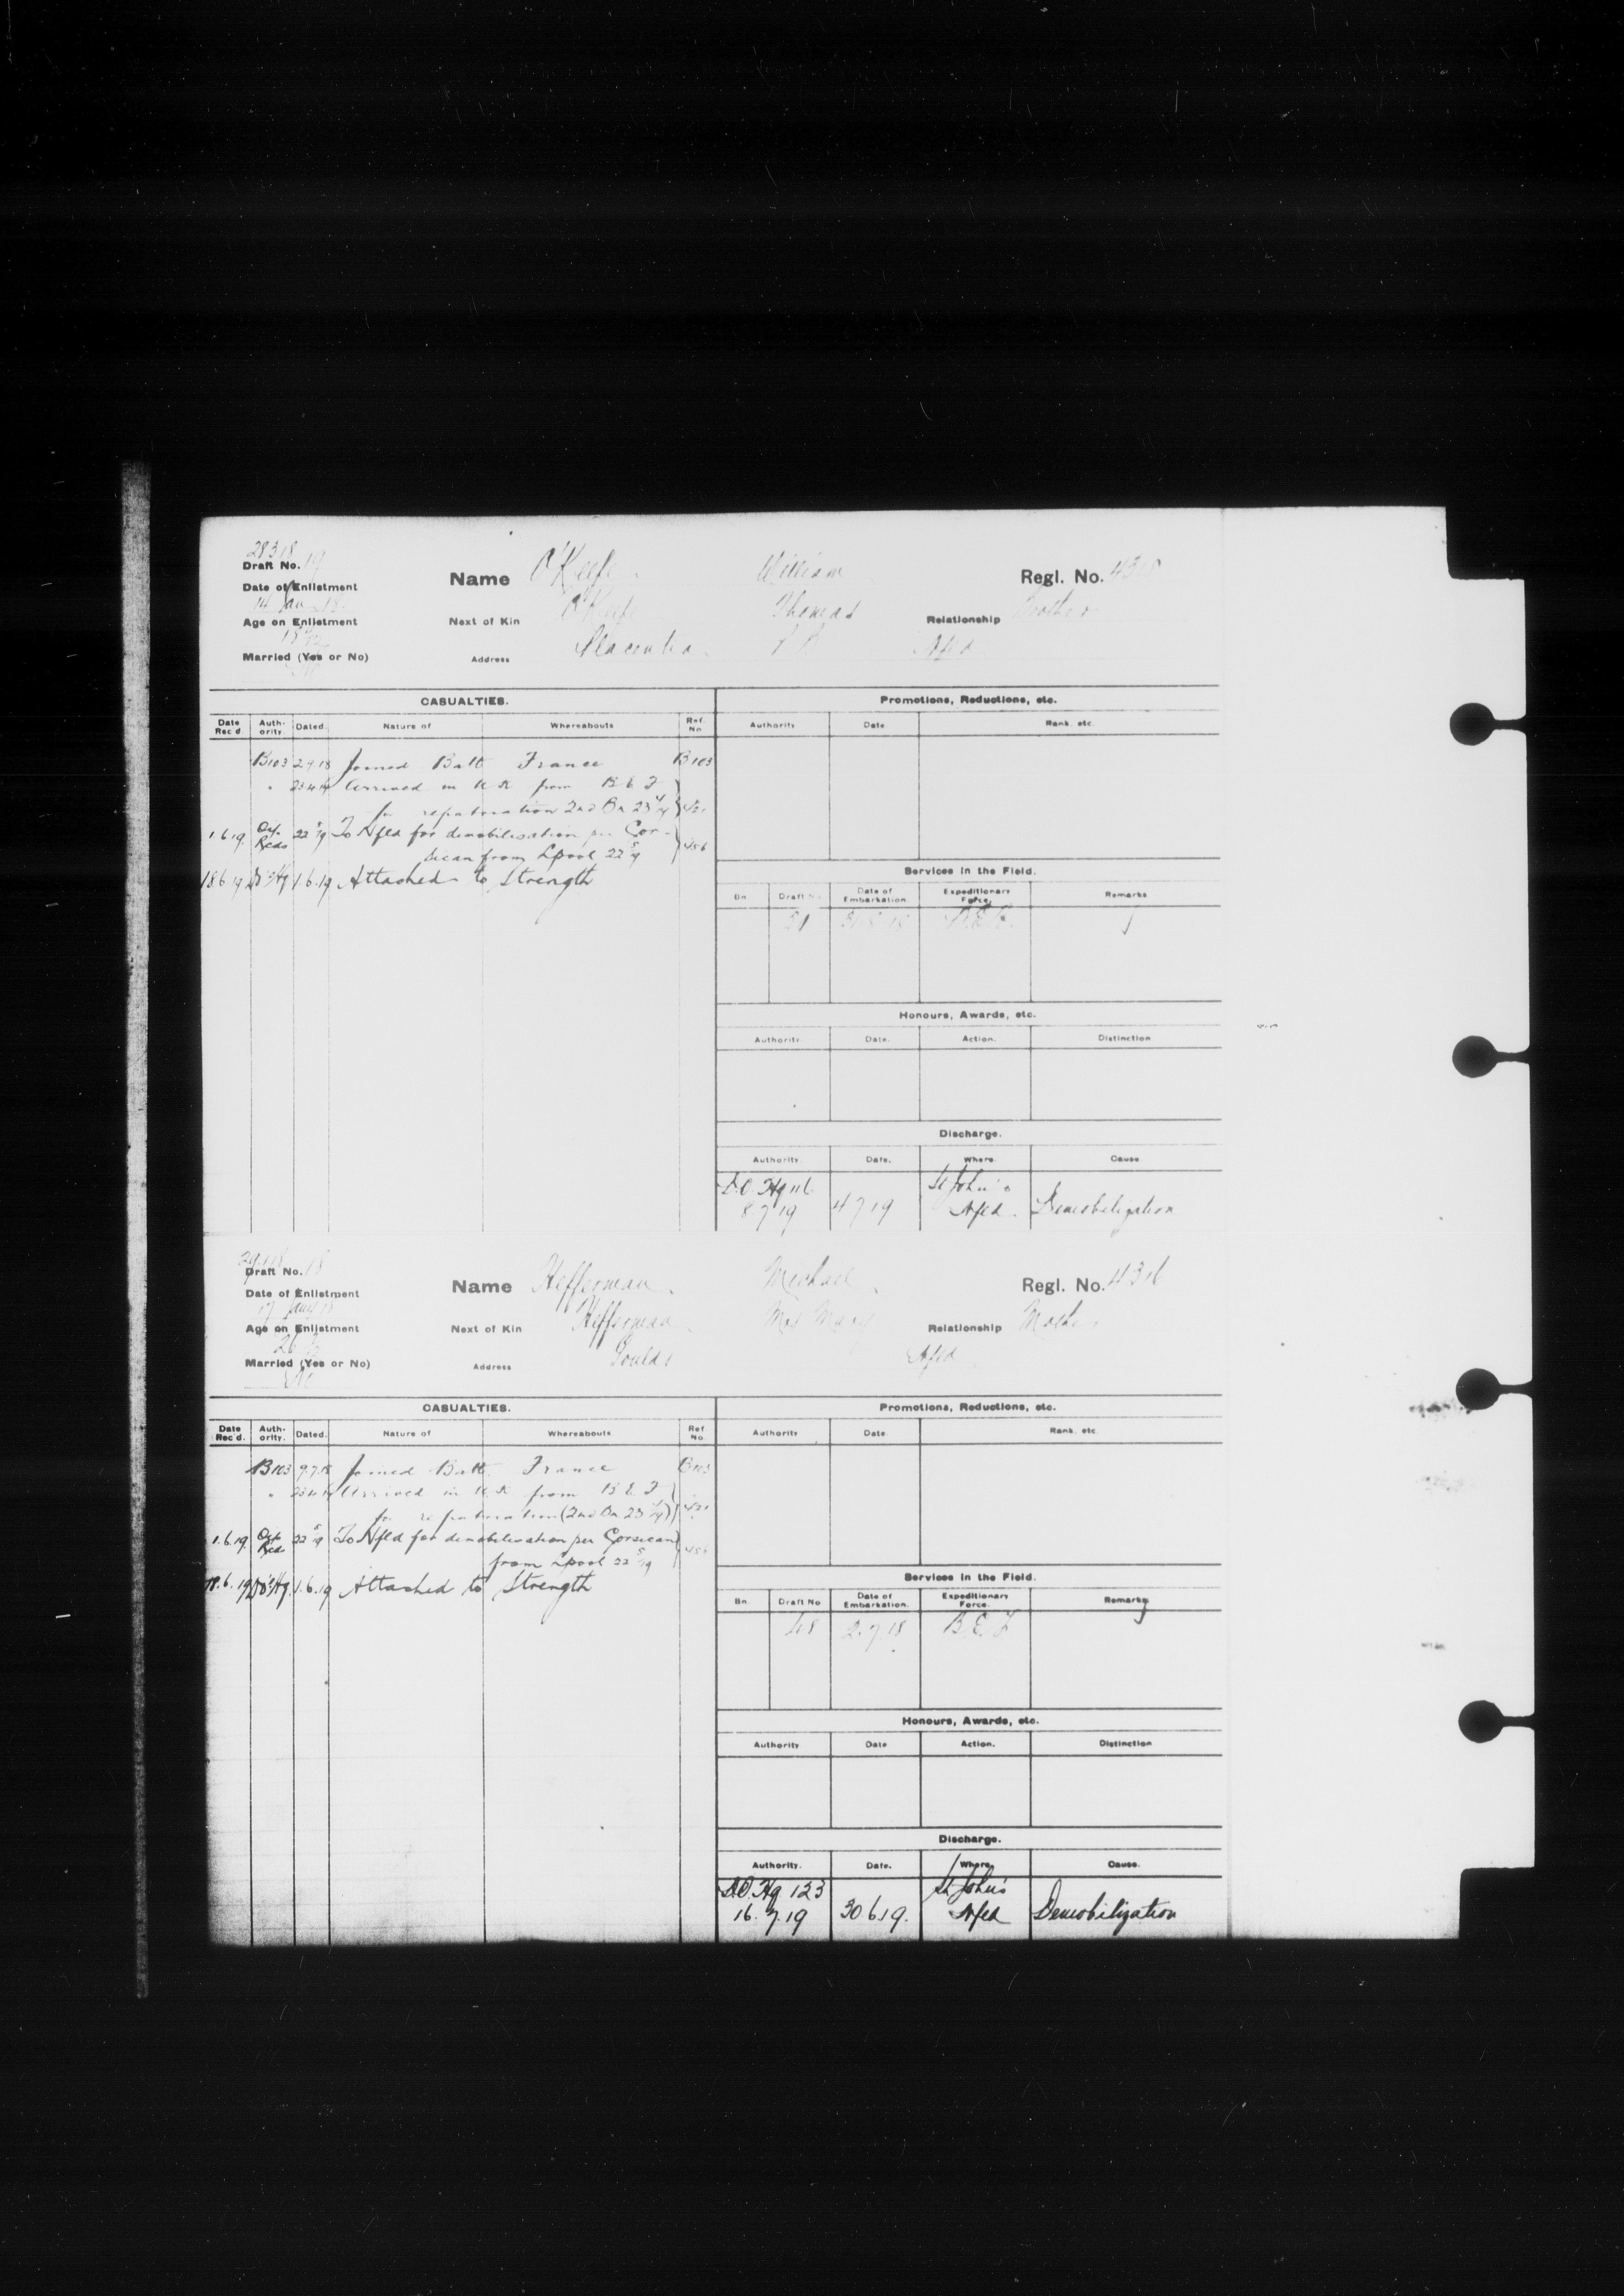 28 3 18
Draft No. 19
Name O'Keefe William Regl. No.
Date of Enlistment
14 Jan 18
Next of Kin O'Keefe Thomas Relationship
Age on Enlistment
18
Address Placentia Nfld
Married (Yes or No)
No
CASUALTIES. Promotions, Reductions, etc.
Date Rec'd Auth-ority Dated. Nature of Whereabouts Ref. No Authority Date Rank. etc.
B103 2.9.18 Joined Batt France B103
" 23.4.19 Arrived in U.K from B E F
for repatriation 2nd Bn 23 4/19
1.6.19 Off. Reds 22 5/19 To Nfld for demobilisation per Cor-
sican from Lpool 22 5/19 456
18.6.19 DO's Hq 1.6.19 Attached to Strength
Services in the Field.
Bn Draft No. Date of Embarkation. Expeditionary Force. Remarks
51 B.E.F.
Honours, Awards, etc.
Authority Date. Action. Distinction
Discharge.
Authority Date. Where. Cause
D.O. Hq 116 St John's
8 7 19 4 7 19 Nfld. Demobilization
Draft No. 18
Name Hefferman Michael Regl. No. 4316
Date of Enlistment
17 Jany 18
Next of Kin Hefferman Mrs Mary Relationship Mother
Age on Enlistment
26
Address Goulds Nfld
Married (Yes or No)
No
CASUALTIES. Promotions, Reductions, etc.
Date Rec'd. Auth-ority. Dated. Nature of Whereabouts Ref No. Authority Date Rank. etc
B103 9.7.18 Joined Batt. France B103
" 23.4.19 Arrived in U.K from B E F
for repatriation (2nd Bn 23 4/19)
1.6.19. Off. Reds 22 5/19 To Nfld for demobilisation per Corsican
from Lpool 22 5/19 456
18.6.19 DO's Hq 1.6.19 Attached to Strength
Services in the Field.
Bn Draft No Date of Embarkation. Expeditionary Force. Remarks
48 2.7.18 B.E.F
Honours, Awards, etc.
Authority Date Action. Distinction
Discharge.
Authority. Date. Where. Cause.
D.O. Hq 123 St. John's
16.7.19 30 6 19. Nfld Demobilization